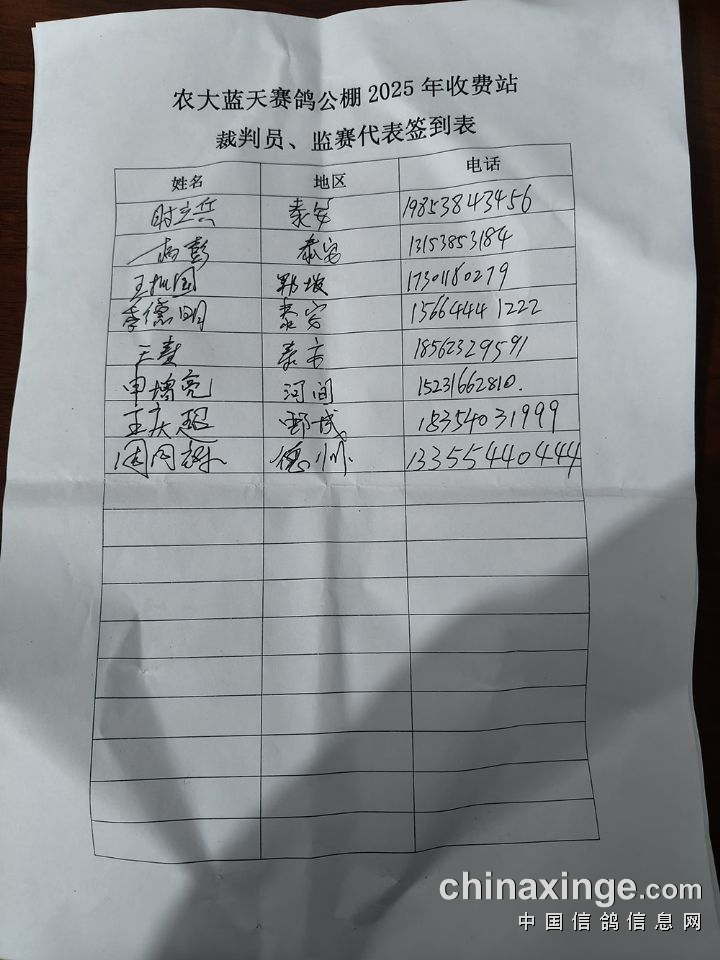 农大蓝天赛鸽公棚2025年收费站
裁判员、监赛代表签到表
姓名 地区 电话
时立兵 泰安 19853843456
泰安 13153853184
17301180279
李德明 泰安 15664441222
王 泰安 18562329591
申增亮 河间 15231662810.
王庆超 鄄城 18354031999
德州 13355440444
chinaxinge.com
中国信鸽信息网